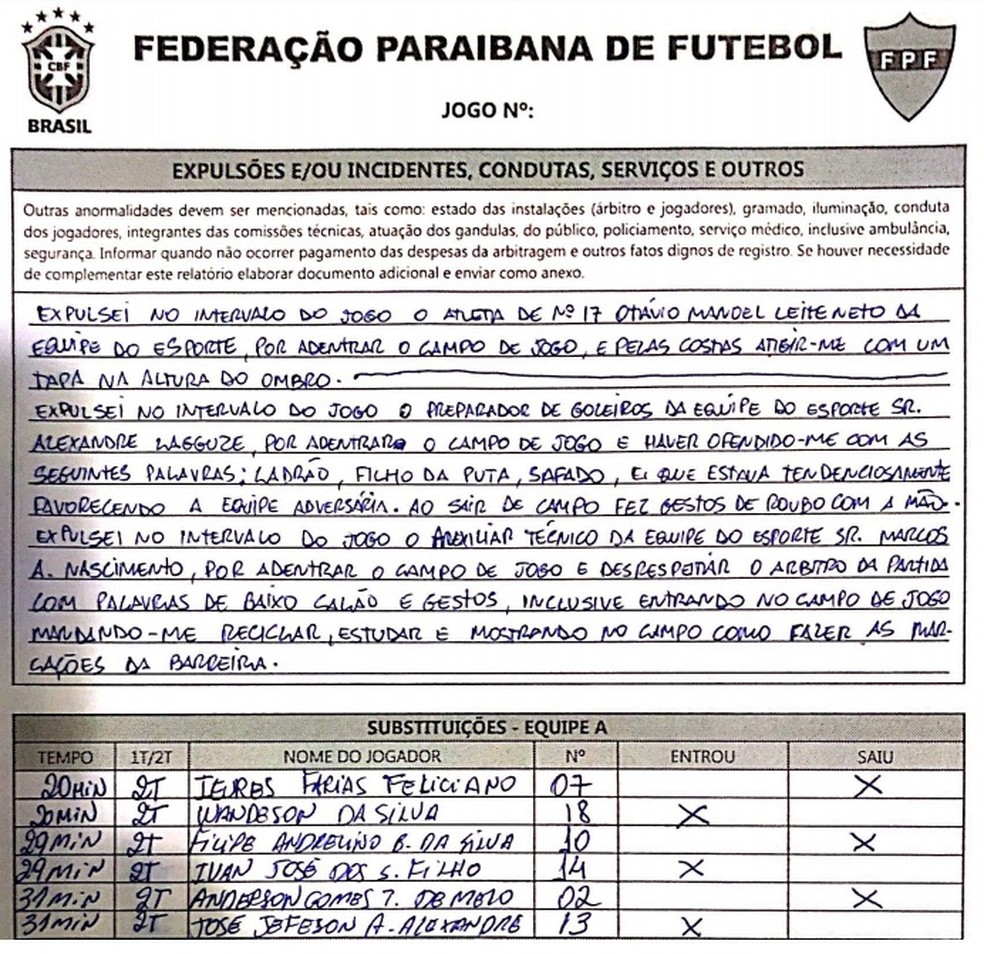 CBF
BRASIL
FEDERAÇÃO PARAIBANA DE FUTEBOL
FPF
JOGO Nº:
EXPULSÕES E/OU INCIDENTES, CONDUTAS, SERVIÇOS E OUTROS
Outras anormalidades devem ser mencionadas, tais como: estado das instalações (árbitro e jogadores), gramado, iluminação, conduta
dos jogadores, integrantes das comissões técnicas, atuação dos gandulas, do público, policiamento, serviço médico, inclusive ambulância,
segurança. Informar quando não ocorrer pagamento das despesas da arbitragem e outros fatos dignos de registro. Se houver necessidade
de complementar este relatório elaborar documento adicional e enviar como anexo.
EXPULSEI NO INTERVALO DO JOGO O ATLETA DE Nº 17 OTÁVIO MANOEL LEITE NETO DA
EQUIPE DO ESPORTE, POR ADENTRAR O CAMPO DE JOGO, E PELAS COSTAS ATIGIR-ME COM UM
TAPA NA ALTURA DO OMBRO.
EXPULSEI NO INTERVALO DO JOGO O PREPARADOR DE GOLEIROS DA EQUIPE DO ESPORTE SR.
ALEXANDRE LAGGUZE, POR ADENTRAR O CAMPO DE JOGO E HAVER OFENDIDO-ME COM AS
SEGUINTES PALAVRAS; LADRÃO, FILHO DA PUTA, SAFADO, E QUE ESTAVA TENDENCIOSAMENTE
FAVORECENDO A EQUIPE ADVERSÁRIA. AO SAIR DE CAMPO FEZ GESTOS DE ROUBO COM A MÃO.
EXPULSEI NO INTERVALO DO JOGO O AUXILIAR TÉCNICO DA EQUIPE DO ESPORTE SR. MARCOS
A. NASCIMENTO, POR ADENTRAR O CAMPO DE JOGO E DESRESPEITAR O ARBITRO DA PARTIDA
COM PALAVRAS DE BAIXO CALÃO E GESTOS, INCLUSIVE ENTRANDO NO CAMPO DE JOGO
MANDANDO-ME RECICLAR, ESTUDAR E MOSTRANDO NO CAMPO COMO FAZER AS MAR-
CAÇÕES DA BARREIRA.
SUBSTITUIÇÕES - EQUIPE A
TEMPO 1T/2T NOME DO JOGADOR Nº ENTROU SAIU
20MIN 2T FARIAS FELICIANO 07 X
20MIN 2T WANDESON DA SILVA 18 X
29MIN 2T FILIPE ANDRELINO B. DA SILVA 10 X
29MIN 2T IVAN JOSÉ DOS S. FILHO 14 X
31MIN 2T ANDERSON GOMES T. DE MELO 02 X
31MIN 2T JOSÉ JEFESON A. ALEXANDRE 13 X